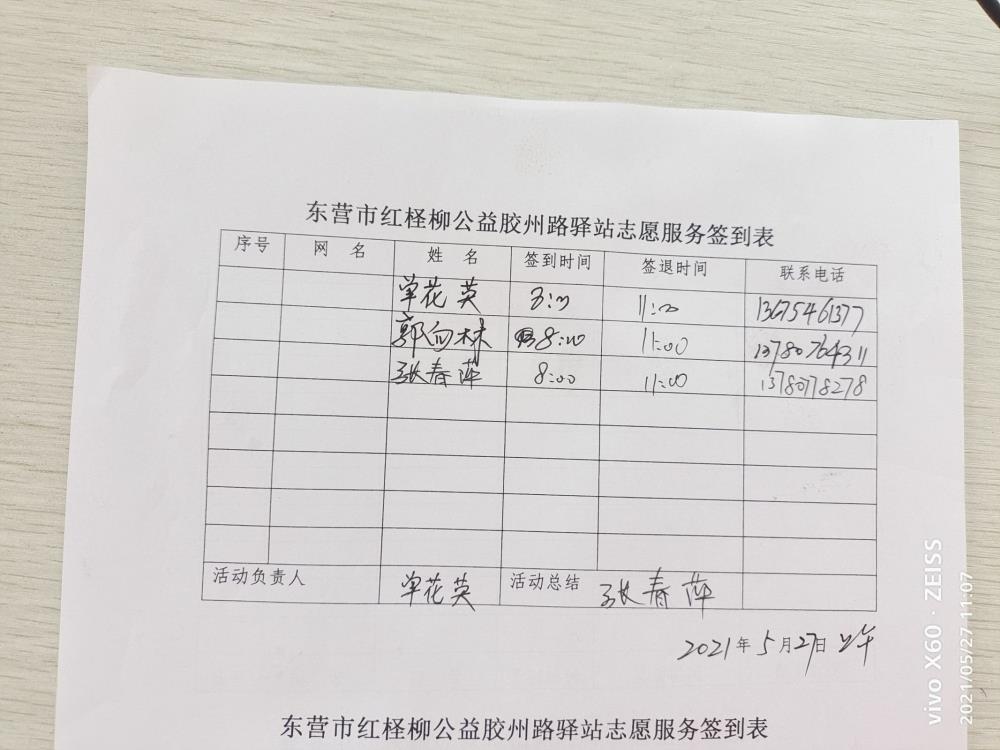 东营市红柽柳公益胶州路驿站志愿服务签到表
序号 网 名 姓 名 签到时间 签退时间 联系电话
单花英 8:00 11:00 13675461377
郭向林 8:00 11:00 13780764311
张春萍 8:00 11:00 13780778278
活动负责人 单花英 活动总结 张春萍
2021年5月27日 上午
东营市红柽柳公益胶州路驿站志愿服务签到表
vivo X60 · ZEISS
2021/05/27 11:07